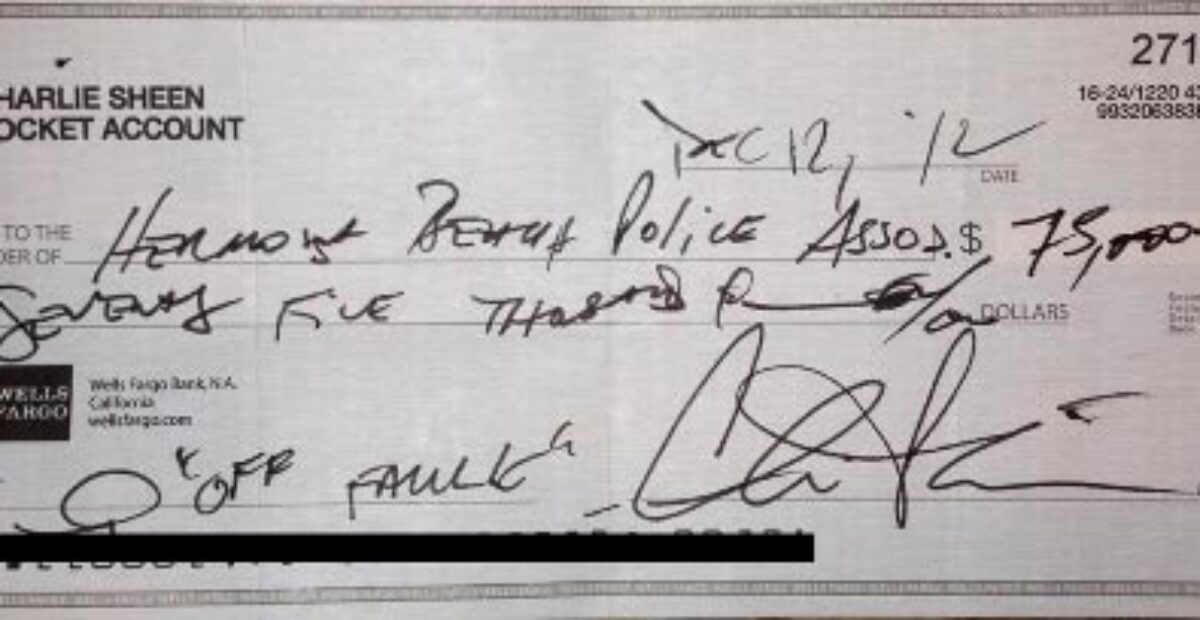 271
HARLIE SHEEN
OCKET ACCOUNT
16-24/1220 43
9932063838
DEC 12, '12
DATE
TO THE
DER OF
HERMOSA BEACH POLICE ASSOC. $ 75,000
SEVENTY FIVE THOUSAND
DOLLARS
WELLS
FARGO
Wells Fargo Bank, N.A.
California
wellsfargo.com
"OFF FAULK"